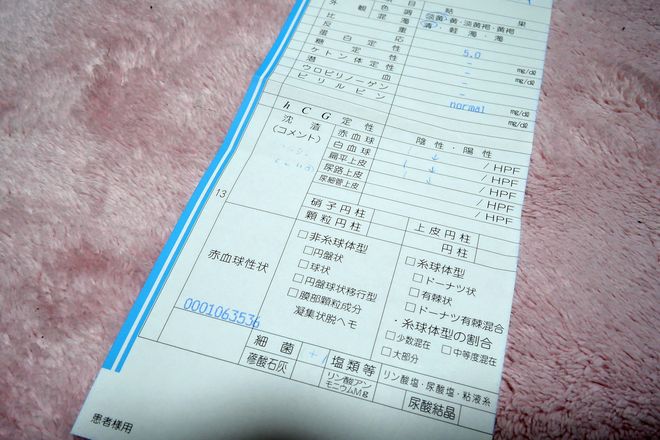 目 結 果
外観 色調 淡黄・黄・淡黄褐・黄褐
混濁 清・軽濁・濁
比重
反応 5.0
蛋白定性 - mg/dℓ
ケトン体定性 - mg/dℓ
潜血 -
ウロビリノーゲン normal mg/dℓ
ビリルビン mg/dℓ
hCG定性 陰性・陽性
沈渣 赤血球 /HPF
(コメント) 白血球 /HPF
扁平上皮 /HPF
尿路上皮 /HPF
尿細管上皮 /HPF
13
硝子円柱 上皮円柱
顆粒円柱 円柱
赤血球性状
□非糸球体型 □糸球体型
□円盤状 □ドーナツ状
□球状 □有棘状
□円盤球状移行型 □ドーナツ有棘混合
□膜部顆粒成分 ・糸球体型の割合
凝集状脱ヘモ □少数混在 □中等度混在
□大部分
0001063536
細菌 +1 塩類等 リン酸塩・尿酸塩・粘液糸
蓚酸石灰 リン酸アンモニウムMg 尿酸結晶
患者様用